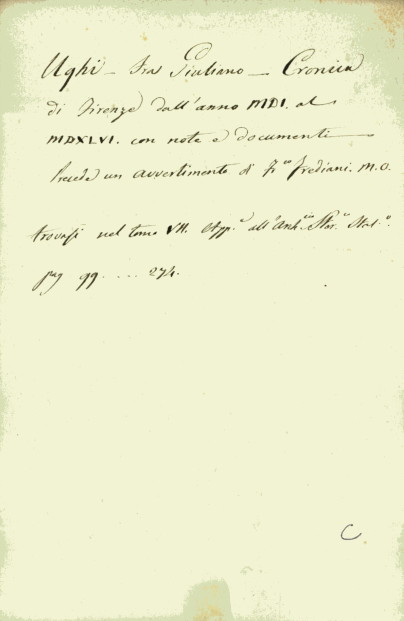 Ughi - Fra Giuliano - Cronica
di Firenze dall'anno MDI. al
MDXLVI. con note e documenti
Precede un avvertimento di F.co Frediani. M.O.
trovasi nel tomo VII. App.e all'Arch.io Stor.o Ital.o
pag 99. .... 274.
C